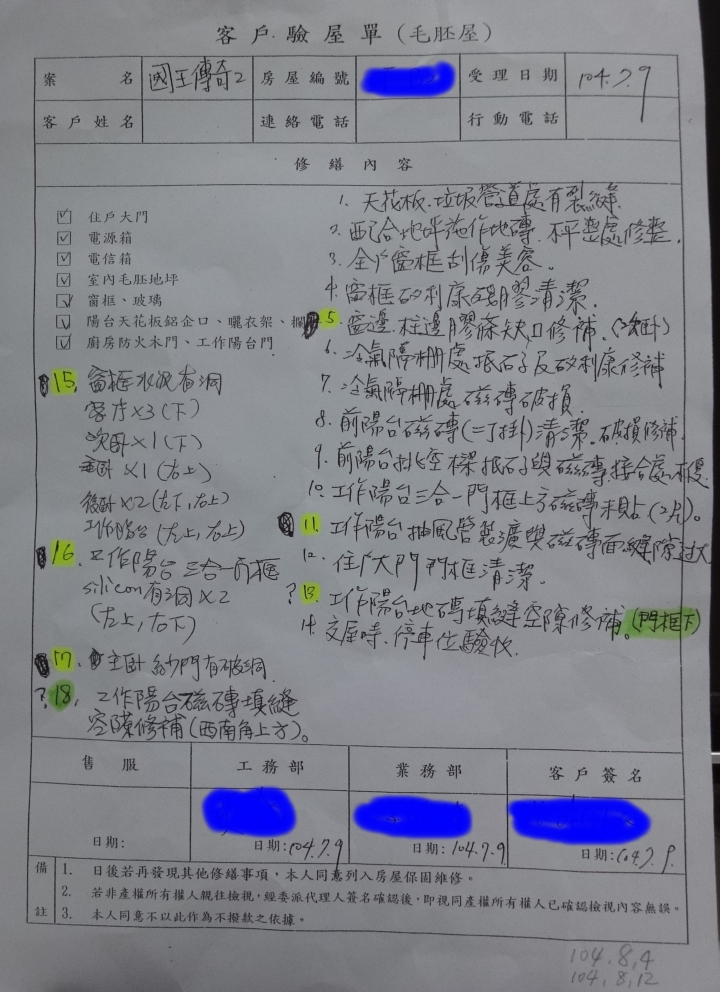 客戶驗屋單(毛胚屋)
案名 國王傳奇2 房屋編號 受理日期 104.7.9
客戶姓名 連絡電話 行動電話
修繕內容
住戶大門
電源箱
電信箱
室內毛胚地坪
窗框、玻璃
陽台天花板鋁企口、曬衣架、欄
廚房防火木門、工作陽台門
1. 天花板.垃圾管道處有裂縫.
2. 配合地坪施作地磚.不平整處修整.
3. 全戶窗框刮傷美容。
4. 窗框矽利康殘膠清潔.
5. 窗邊.柱邊膠條缺口修補.(次卧)
6. 冷氣隔柵處抿石子及矽利康修補
7. 冷氣隔柵處磁磚破損.
8. 前陽台磁磚(二丁掛)清潔.破損修補.
9. 前陽台掛空樑抿石子與磁磚接合處不良.
10. 工作陽台三合一門框上方磁磚未貼(2片)。
11. 工作陽台抽風管製瀘與磁磚面縫隙過大
12. 住戶大門門框清潔.
? 13. 工作陽台地磚填縫空隙修補。(門框下)
14. 交屋時.停車位驗收.
15. 窗框水泥有洞
客廳x3(下)
次卧x1(下)
主卧x1(右上)
後卧x2(左下,右上)
工作陽台(左上,右上)
16. 工作陽台三合一門框
silicon有洞x2
(左上,右下)
17. 主卧紗門有破洞.
? 18. 工作陽台磁磚填縫
空隙修補(西南角上方)。
售服 工務部 業務部 客戶簽名
日期: 日期:104.7.9 日期:104.7.9 日期:104.7.9.
備註
1. 日後若再發現其他修繕事項，本人同意列入房屋保固維修。
2. 若非產權所有權人親往檢視，經委派代理人簽名確認後，即視同產權所有權人已確認檢視內容無誤。
3. 本人同意不以此作為不撥款之依據。
104.8.4
104.8.12